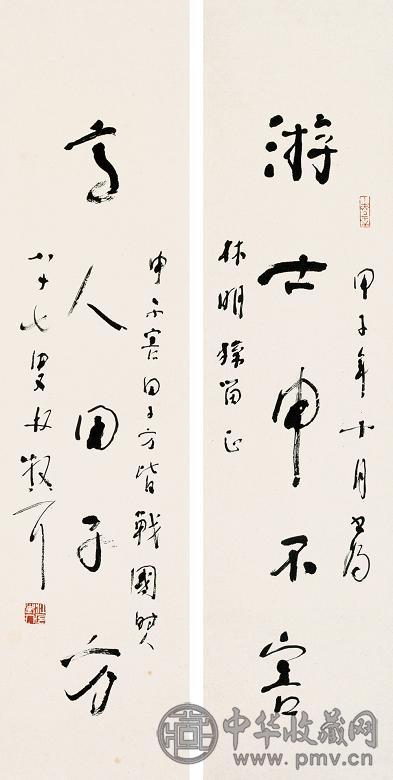 甲子年十月書為
游士申不害
林明留正
申不害田子方皆戰國時人
高人田子方
八十七叟林散耳
中华收藏网
www.pmv.cn